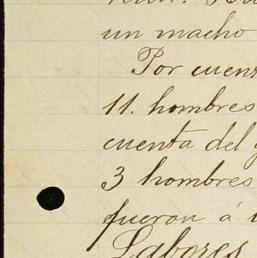 un macho
Por cuen
11. hombres
cuenta del
3 hombres
fueron á
Labores